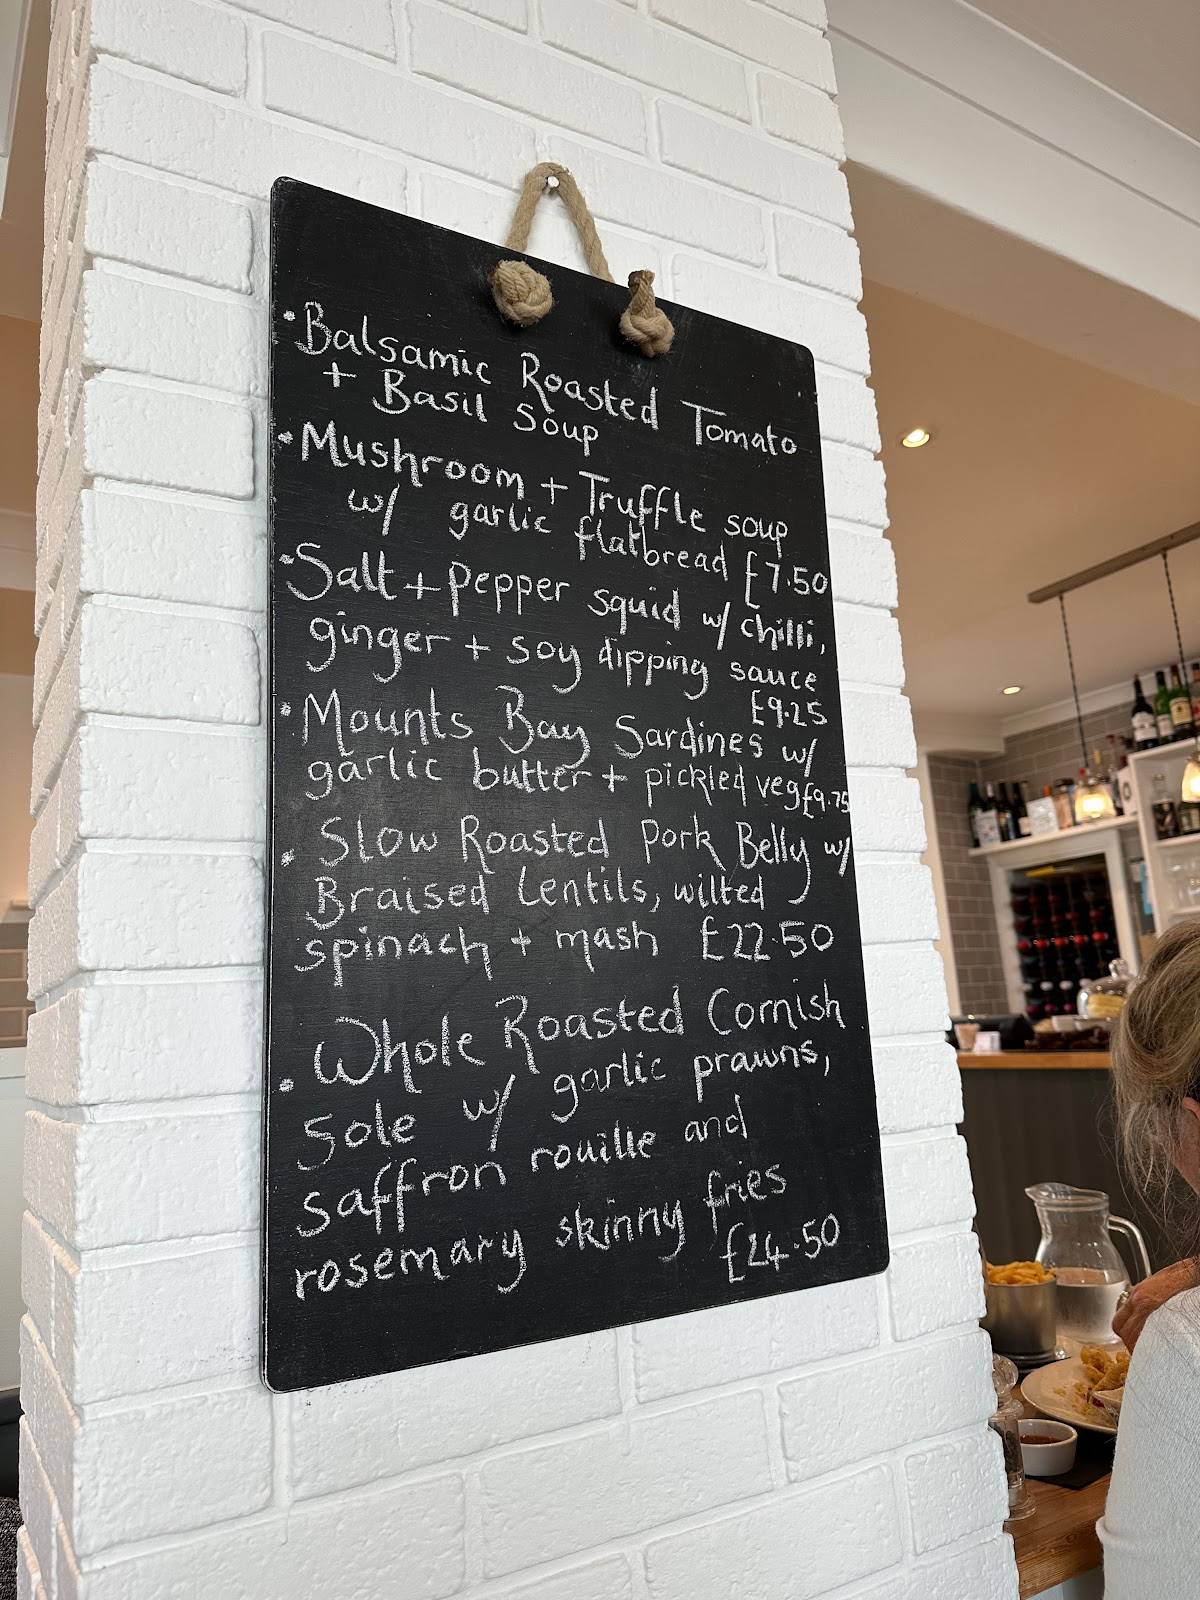 • Balsamic Roasted Tomato
+ Basil Soup
• Mushroom + Truffle soup
w/ garlic flatbread £7.50
• Salt + pepper squid w/ chilli,
ginger + soy dipping sauce
£9.25
• Mounts Bay Sardines w/
garlic butter + pickled veg £9.75
• Slow Roasted Pork Belly w/
Braised Lentils, wilted
spinach + mash £22.50
• Whole Roasted Cornish
Sole w/ garlic prawns,
saffron rouille and
rosemary skinny fries
£24.50